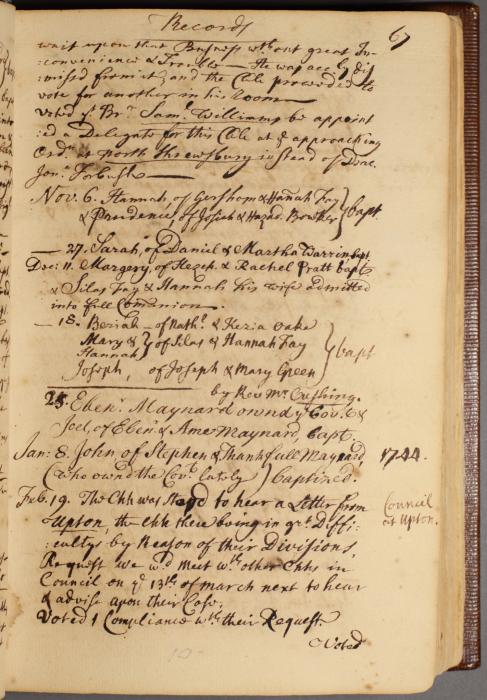 Records
67
wait upon that Business wthout great In-
:convenience & Trouble — He was accly dis
:missd from it; and the Chh proceeded to
vote for another in his Room —
Voted yt Br. Saml. Williams be appoint
:ed a Delegate for this Chh at ye approaching
Ordn. at North Shrewsbury instead of Deac.
Jon: Forbush —
Nov. 6. Hannah, of Gershom & Hanah Fay
& Prudence, of Josiah & Hazad. Bowker } bapt
— 27. Sarah, of Daniel & Martha Warrin bapt.
Dec: 11. Margery, of Hezeh. & Rachel Pratt bapt
& Silas Fay & Hannah his wife admitted
into full Comunion.
— 18. Beriah — of Nathl. & Kezia Oake
Mary & } of Silas & Hannah Fay
Hannah
Joseph, of Joseph & Mary Green } bapt
by Rev Mr. Cushing.
25. Ebenr. Maynard ownd ye Covt. &
Joel, of Ebenr. & Ame Maynard, bapt.
Jan: 8. John, of Stephen & Thankfull Maynard 1744.
(who owned the Covt. lately) baptized.
Feb. 19. The Chh was Stayd to hear a Letter from
Council at Upton.
Upton, the Chh there being in grt. Diffi
:culty by Reason of their Divisions,
Request we wd. meet wth. other Chhs in
Council on ye 13th of March next to hear
& advise upon their Case.
Voted 1 Compliance wth. their Request
Voted